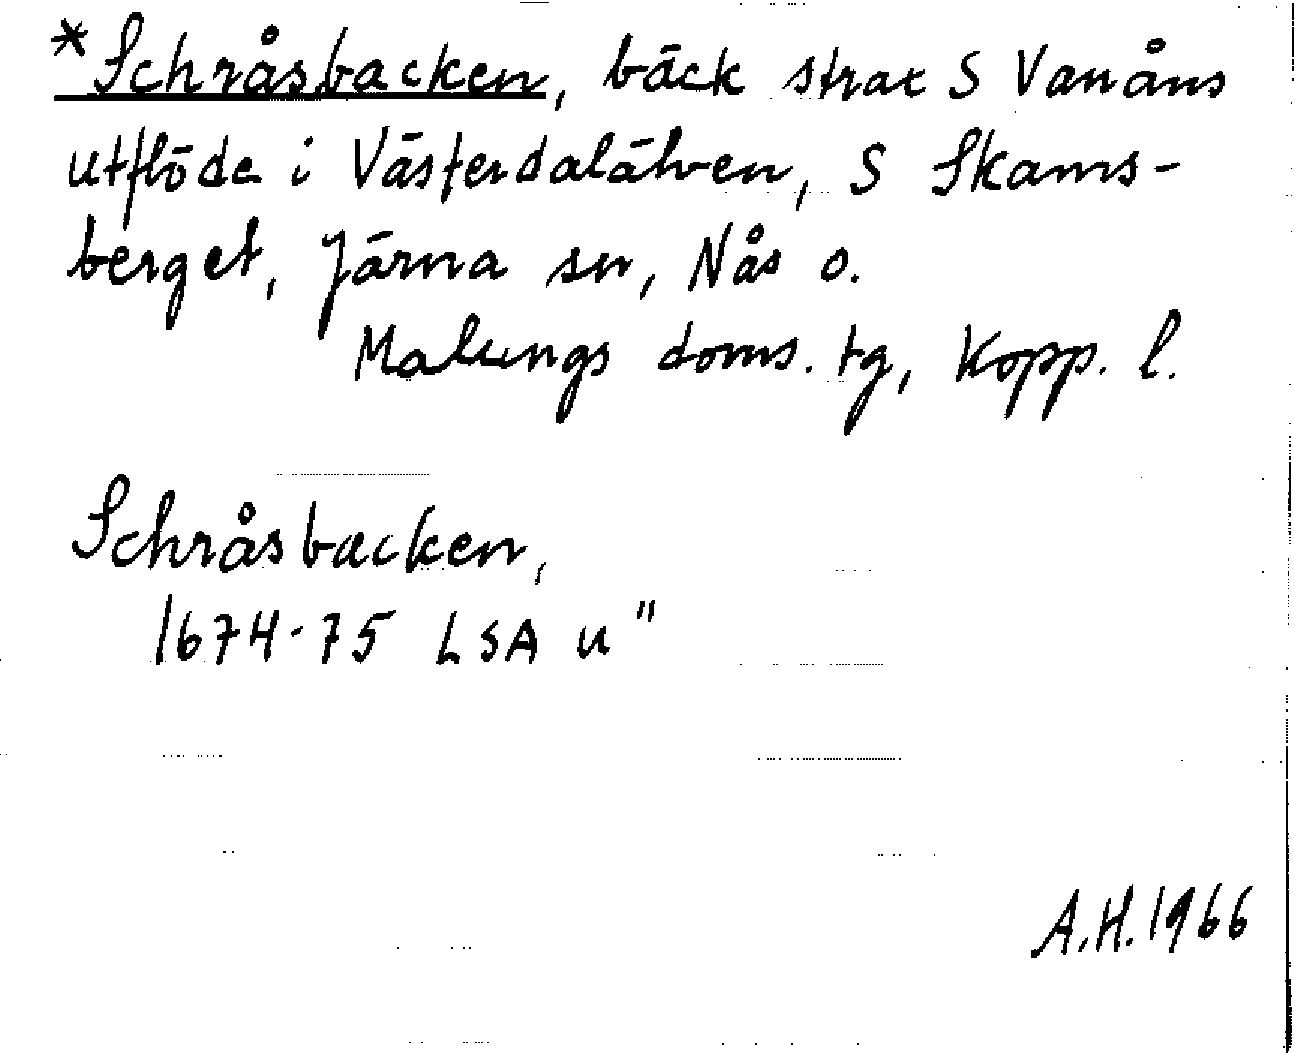 *Schråsbacken, bäck strax S Vanåns
utflöde i Västerdalälven, S Skams-
berget, Järna sn, Nås o.
Malungs doms. tg, Kopp. l.
Schråsbacken,
1674-75 LSA u"
A.H. 1966